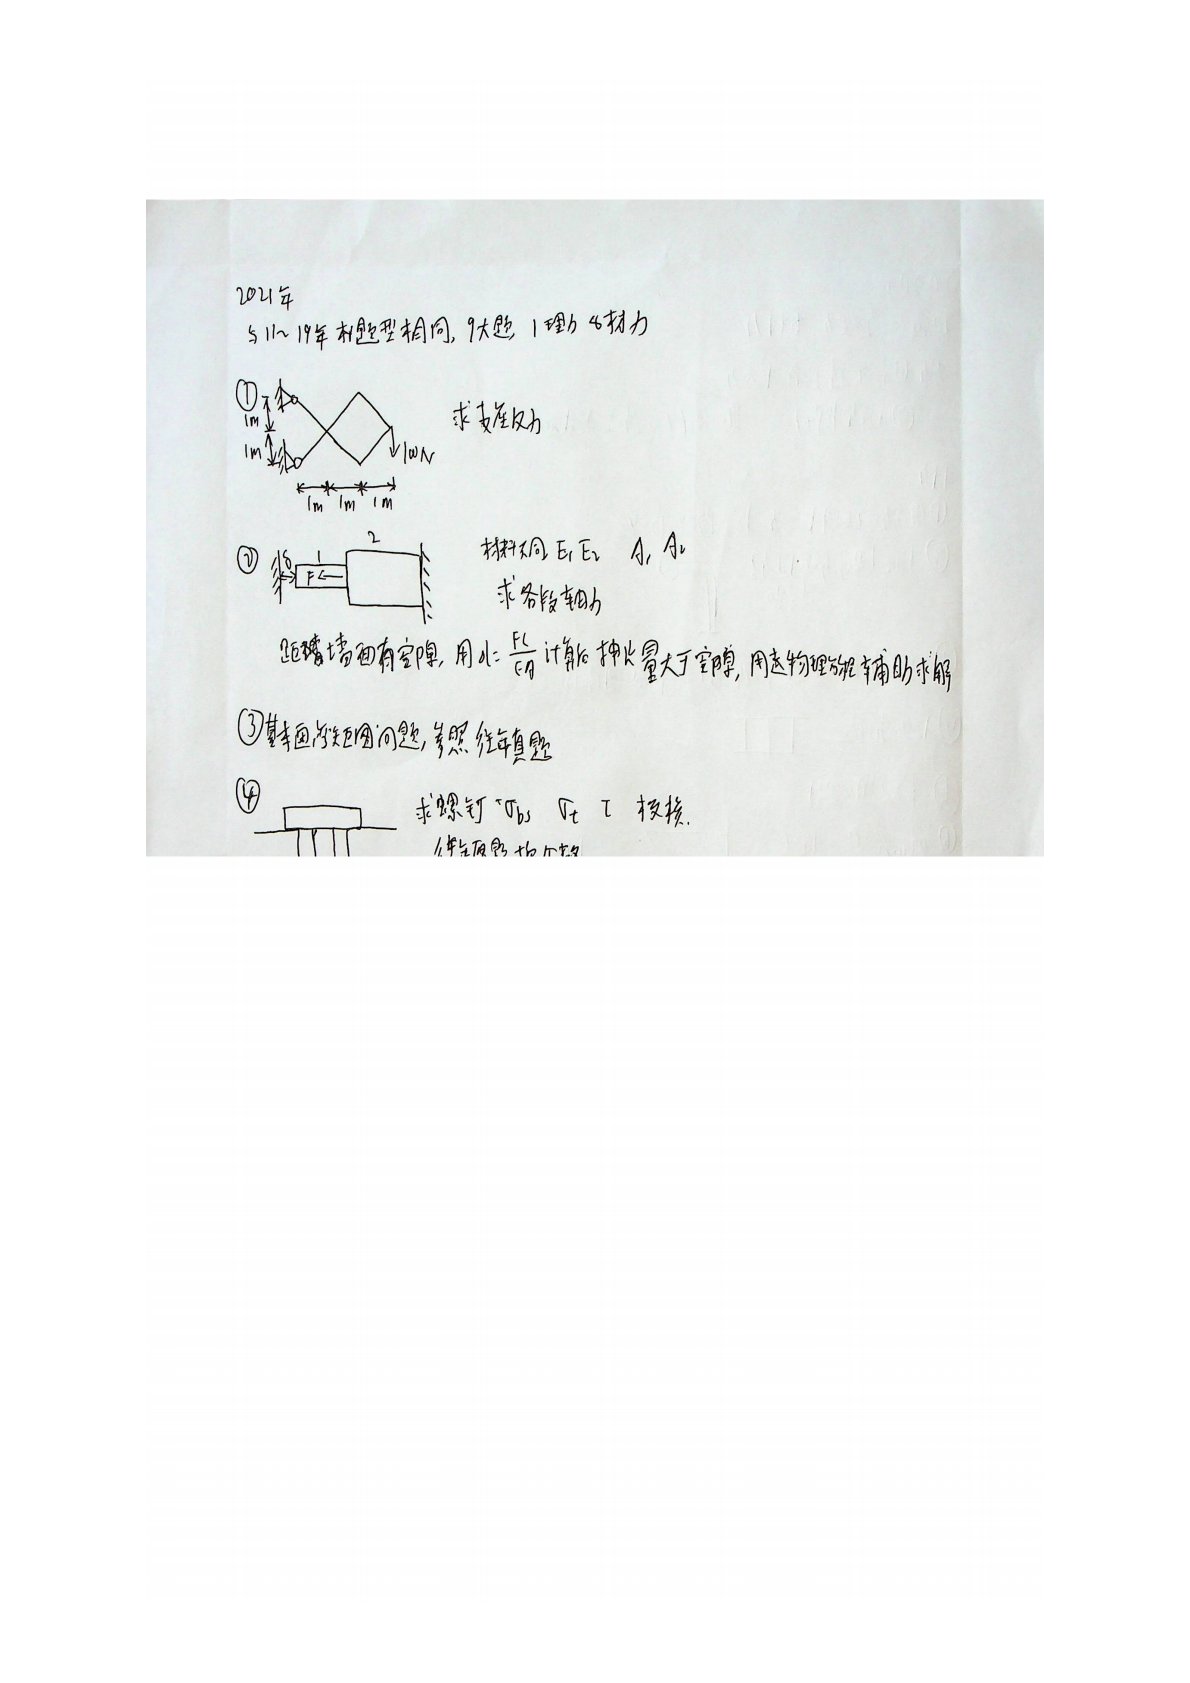 2021年
与11~19年真题型相同, 9大题, 1理力 8材力
① 1m 1m 求支座反力
100N
1m 1m 1m
② δ 1 2 F 材料不同 E₁ E₂ A₁ A₂
求各段轴力
距离墙面有空隙, 用Δl=FL/EA 计算后 伸长量大于空隙, 用逆物理方程辅助求解
③ 基本画弯矩图问题, 参照往年真题
④ 求螺钉 σbs σt τ 校核.
往年真题